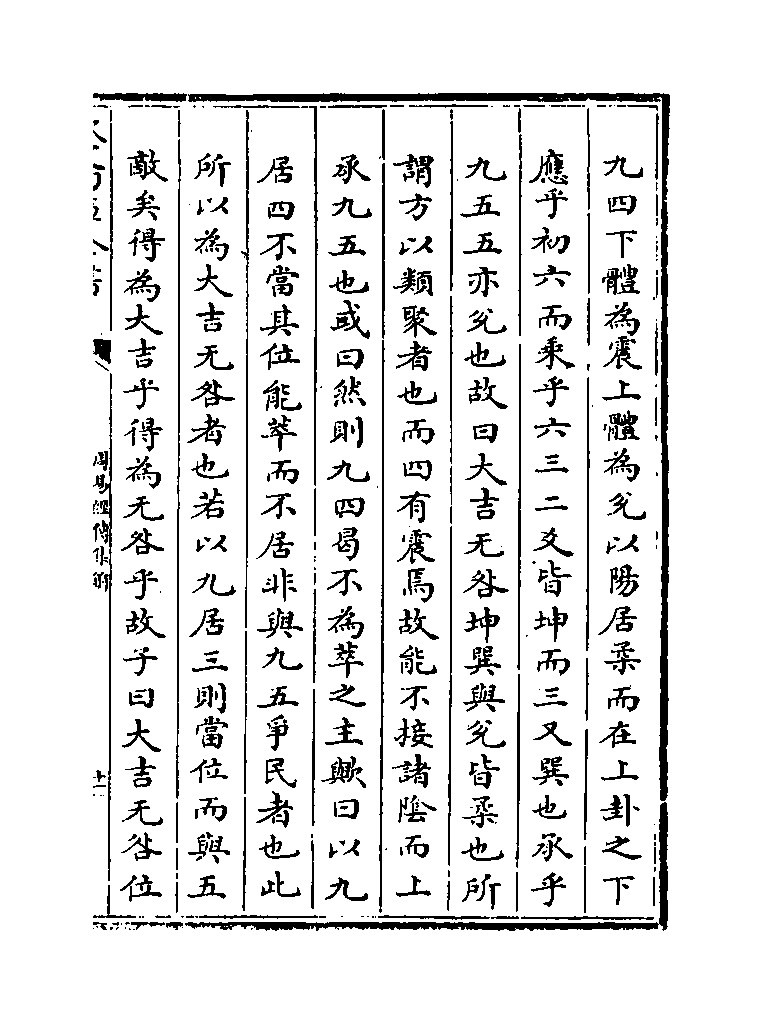 九四下體為震上體為兊以陽居柔而在上卦之下
應乎初六而乘乎六三二爻皆坤而三又巽也承乎
九五五亦兊也故曰大吉无咎坤巽與兊皆柔也所
謂方以類聚者也而四有震焉故能不接諸陰而上
承九五也或曰然則九四曷不為萃之主歟曰以九
居四不當其位能萃而不居非與九五爭民者也此
所以為大吉无咎者也若以九居三則當位而與五
敵矣得為大吉乎得為无咎乎故子曰大吉无咎位
周易經傳集解